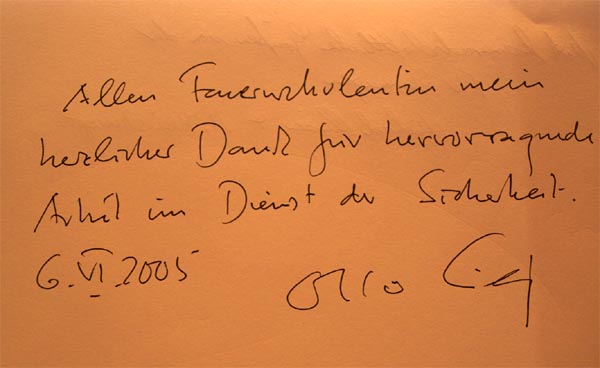 Allen Feuerwehrleuten mein
herzlicher Dank für hervorragende
Arbeit im Dienst der Sicherheit.
6.VI.2005 Otto